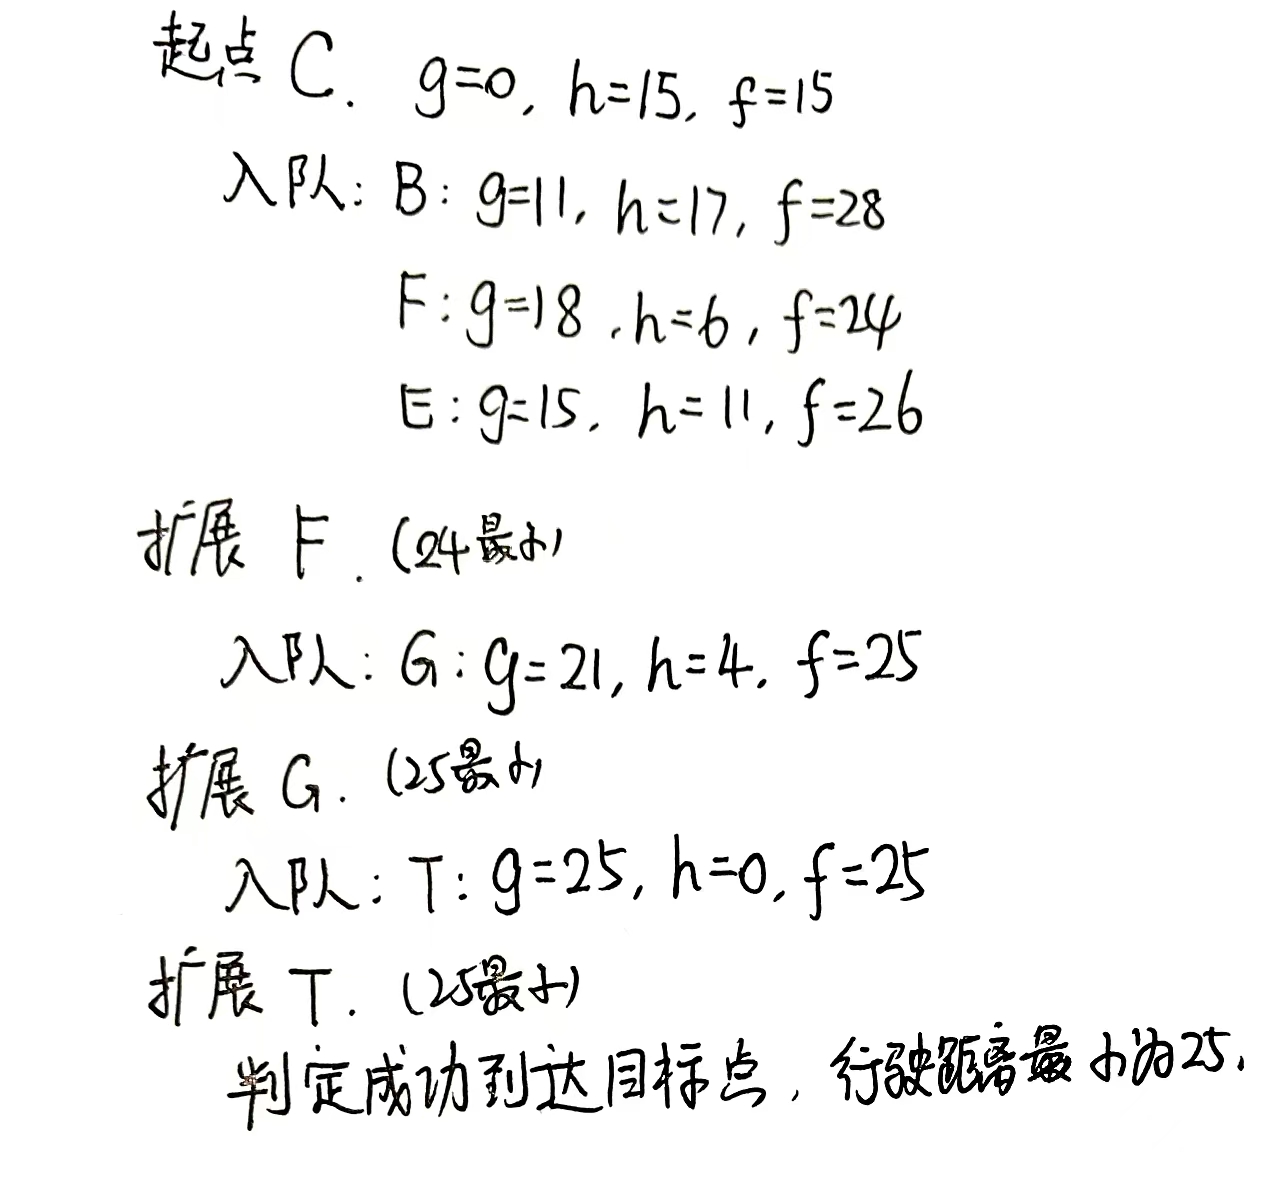 起点 C. g=0, h=15, f=15
入队: B: g=11, h=17, f=28
F: g=18, h=6, f=24
E: g=15, h=11, f=26
扩展 F. (24最小)
入队: G: g=21, h=4, f=25
扩展 G. (25最小)
入队: T: g=25, h=0, f=25
扩展 T. (25最小)
判定成功到达目标点, 行驶距离最小为25.